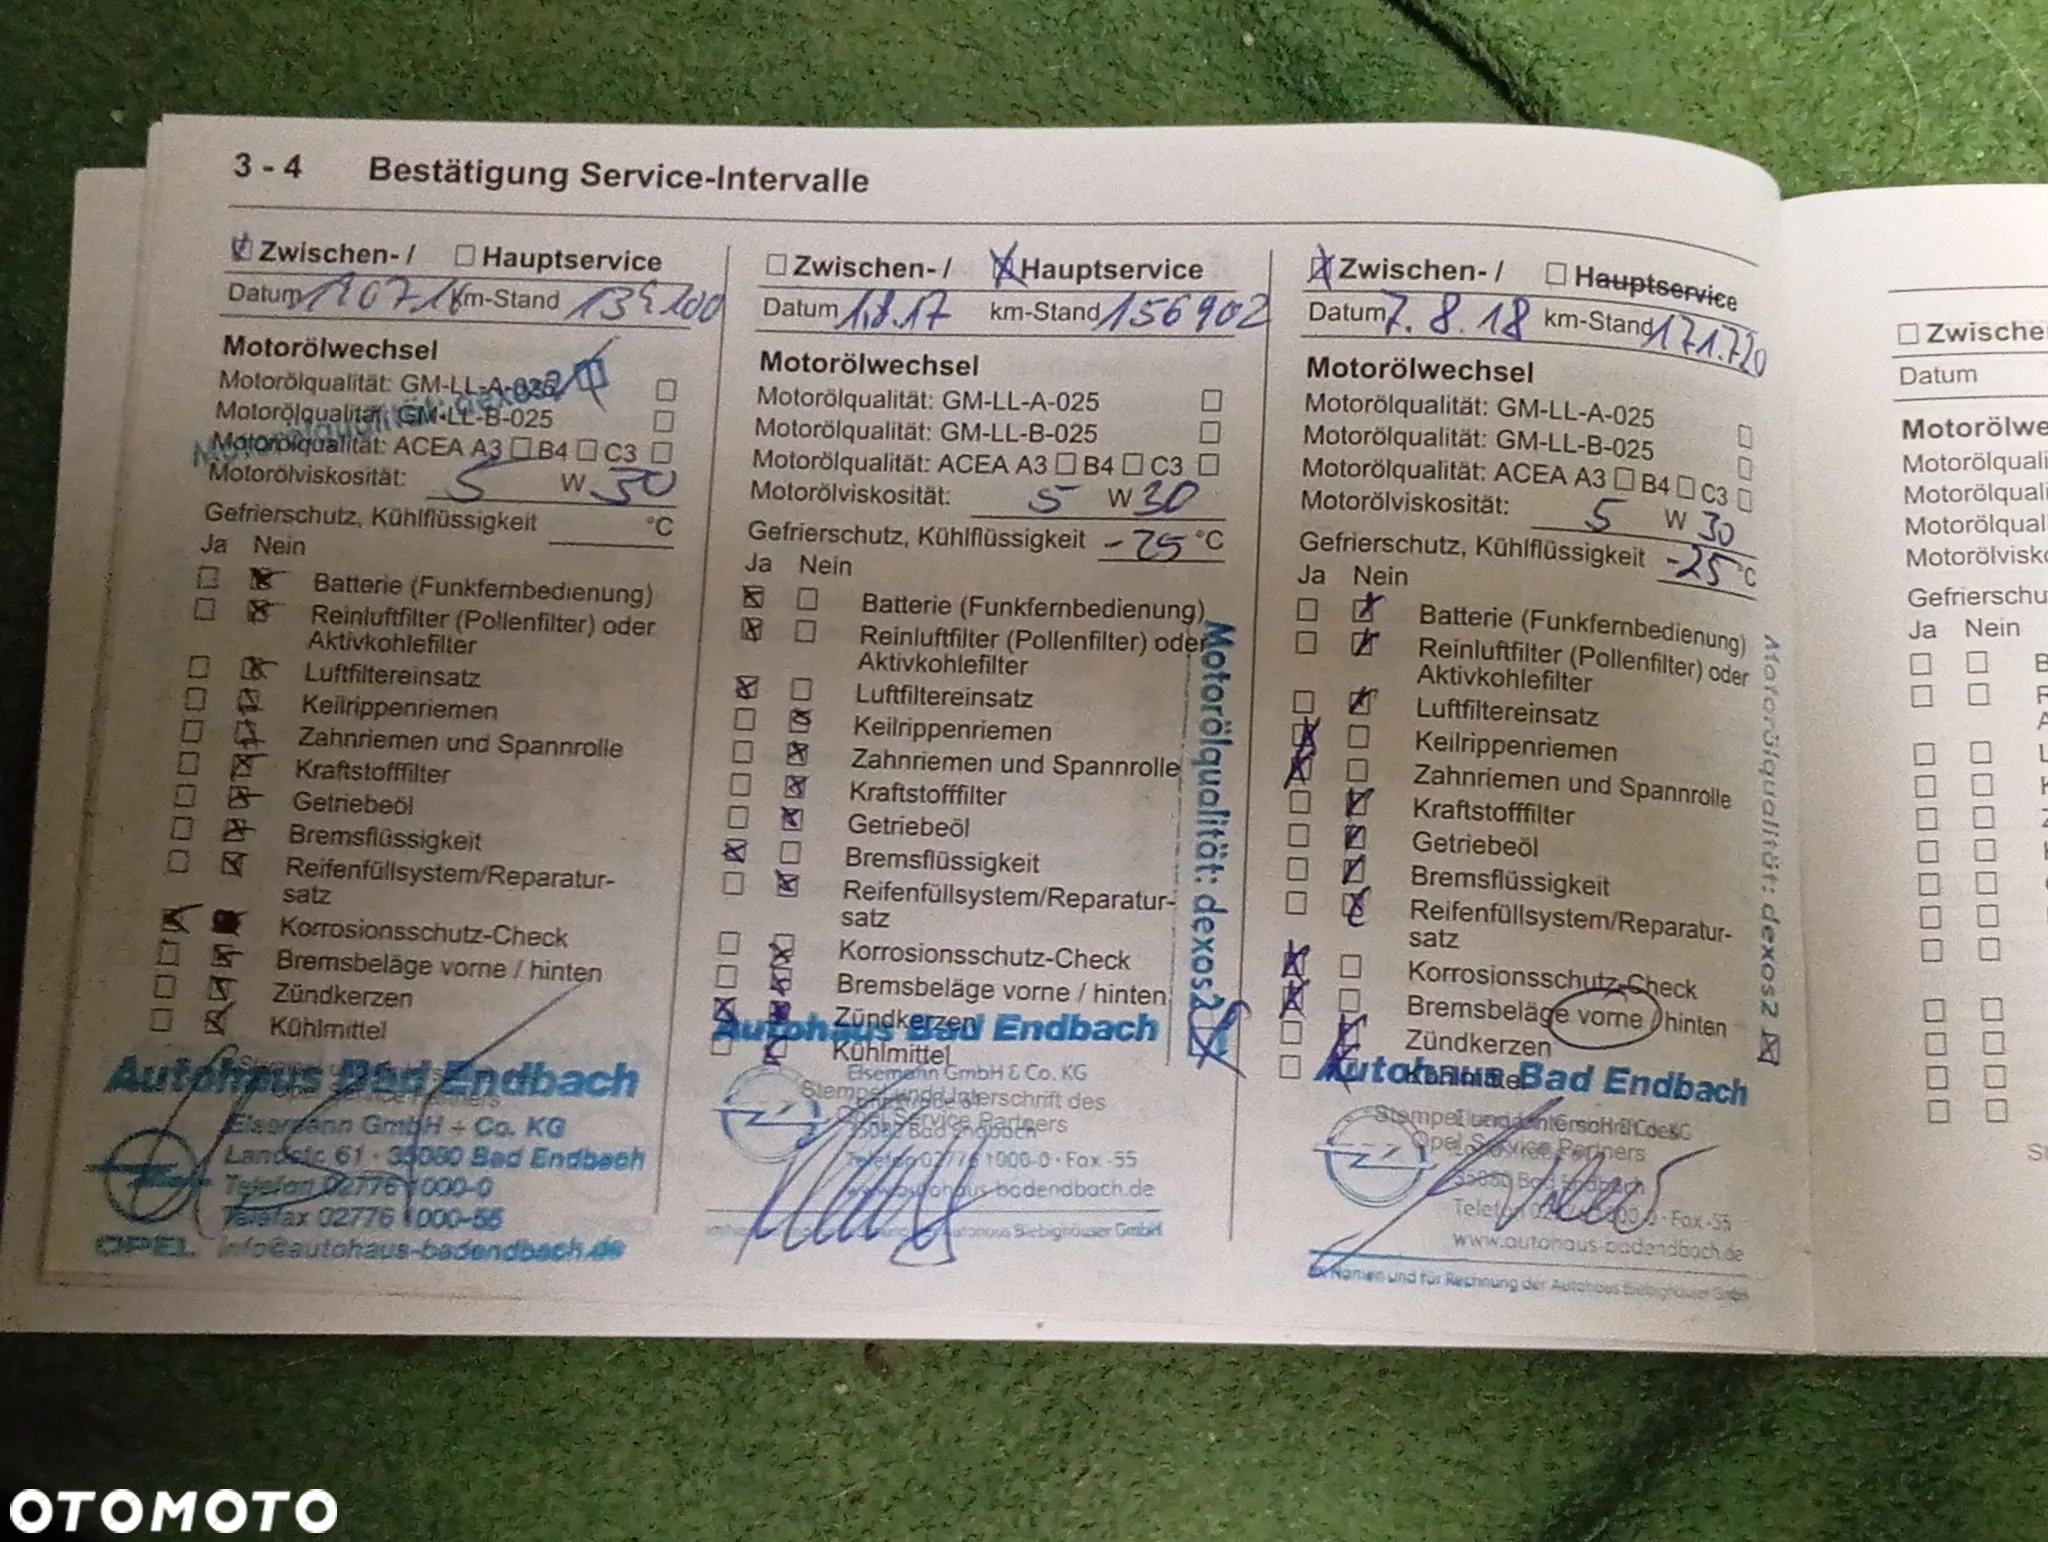 3 - 4 Bestätigung Service-Intervalle
Zwischen- / Hauptservice
Datum km-Stand
Motorölwechsel
Motorölqualität: GM-LL-A-025
Motorölqualität: GM-LL-B-025
Motorölqualität: ACEA A3 B4 C3
Motorölviskosität: 5 W 30
Gefrierschutz, Kühlflüssigkeit °C
Ja Nein
Batterie (Funkfernbedienung)
Reinluftfilter (Pollenfilter) oder
Aktivkohlefilter
Luftfiltereinsatz
Keilrippenriemen
Zahnriemen und Spannrolle
Kraftstofffilter
Getriebeöl
Bremsflüssigkeit
Reifenfüllsystem/Reparatur-
satz
Korrosionsschutz-Check
Bremsbeläge vorne / hinten
Zündkerzen
Kühlmittel
Autohaus Bad Endbach
Elsemann GmbH + Co. KG
Landstr. 61 · 35080 Bad Endbach
Telefon 02776 1000-0
Telefax 02776 1000-55
OPEL info@autohaus-badendbach.de
Zwischen- / Hauptservice
Datum 1.8.17 km-Stand 156902
Motorölwechsel
Motorölqualität: GM-LL-A-025
Motorölqualität: GM-LL-B-025
Motorölqualität: ACEA A3 B4 C3
Motorölviskosität: 5 W 30
Gefrierschutz, Kühlflüssigkeit -25 °C
Ja Nein
Batterie (Funkfernbedienung)
Reinluftfilter (Pollenfilter) oder
Aktivkohlefilter
Luftfiltereinsatz
Keilrippenriemen
Zahnriemen und Spannrolle
Kraftstofffilter
Getriebeöl
Bremsflüssigkeit
Reifenfüllsystem/Reparatur-
satz
Korrosionsschutz-Check
Bremsbeläge vorne / hinten
Zündkerzen
Kühlmittel
Motorölqualität: dexos2
Autohaus Bad Endbach
Elsemann GmbH & Co. KG
Stempel und Unterschrift des
Opel Service Partners
35080 Bad Endbach
Telefon 02776 1000-0 · Fax -55
www.autohaus-badendbach.de
Autohaus Biebighäuser GmbH
Zwischen- / Hauptservice
Datum 7.8.18 km-Stand 171.720
Motorölwechsel
Motorölqualität: GM-LL-A-025
Motorölqualität: GM-LL-B-025
Motorölqualität: ACEA A3 B4 C3
Motorölviskosität: 5 W 30
Gefrierschutz, Kühlflüssigkeit -25 °C
Ja Nein
Batterie (Funkfernbedienung)
Reinluftfilter (Pollenfilter) oder
Aktivkohlefilter
Luftfiltereinsatz
Keilrippenriemen
Zahnriemen und Spannrolle
Kraftstofffilter
Getriebeöl
Bremsflüssigkeit
Reifenfüllsystem/Reparatur-
satz
Korrosionsschutz-Check
Bremsbeläge vorne / hinten
Zündkerzen
Motorölqualität: dexos2
Autohaus Bad Endbach
Stempel und
Opel Service Partners
35080 Bad Endbach
Fax -55
www.autohaus-badendbach.de
Namen und für Rechnung der Autohaus Biebighäuser GmbH
Zwischen
Datum
Motorölwe
Motorölquali
Motorölquali
Motorölquali
Motorölvisk
Gefrierschu
Ja Nein
OTOMOTO